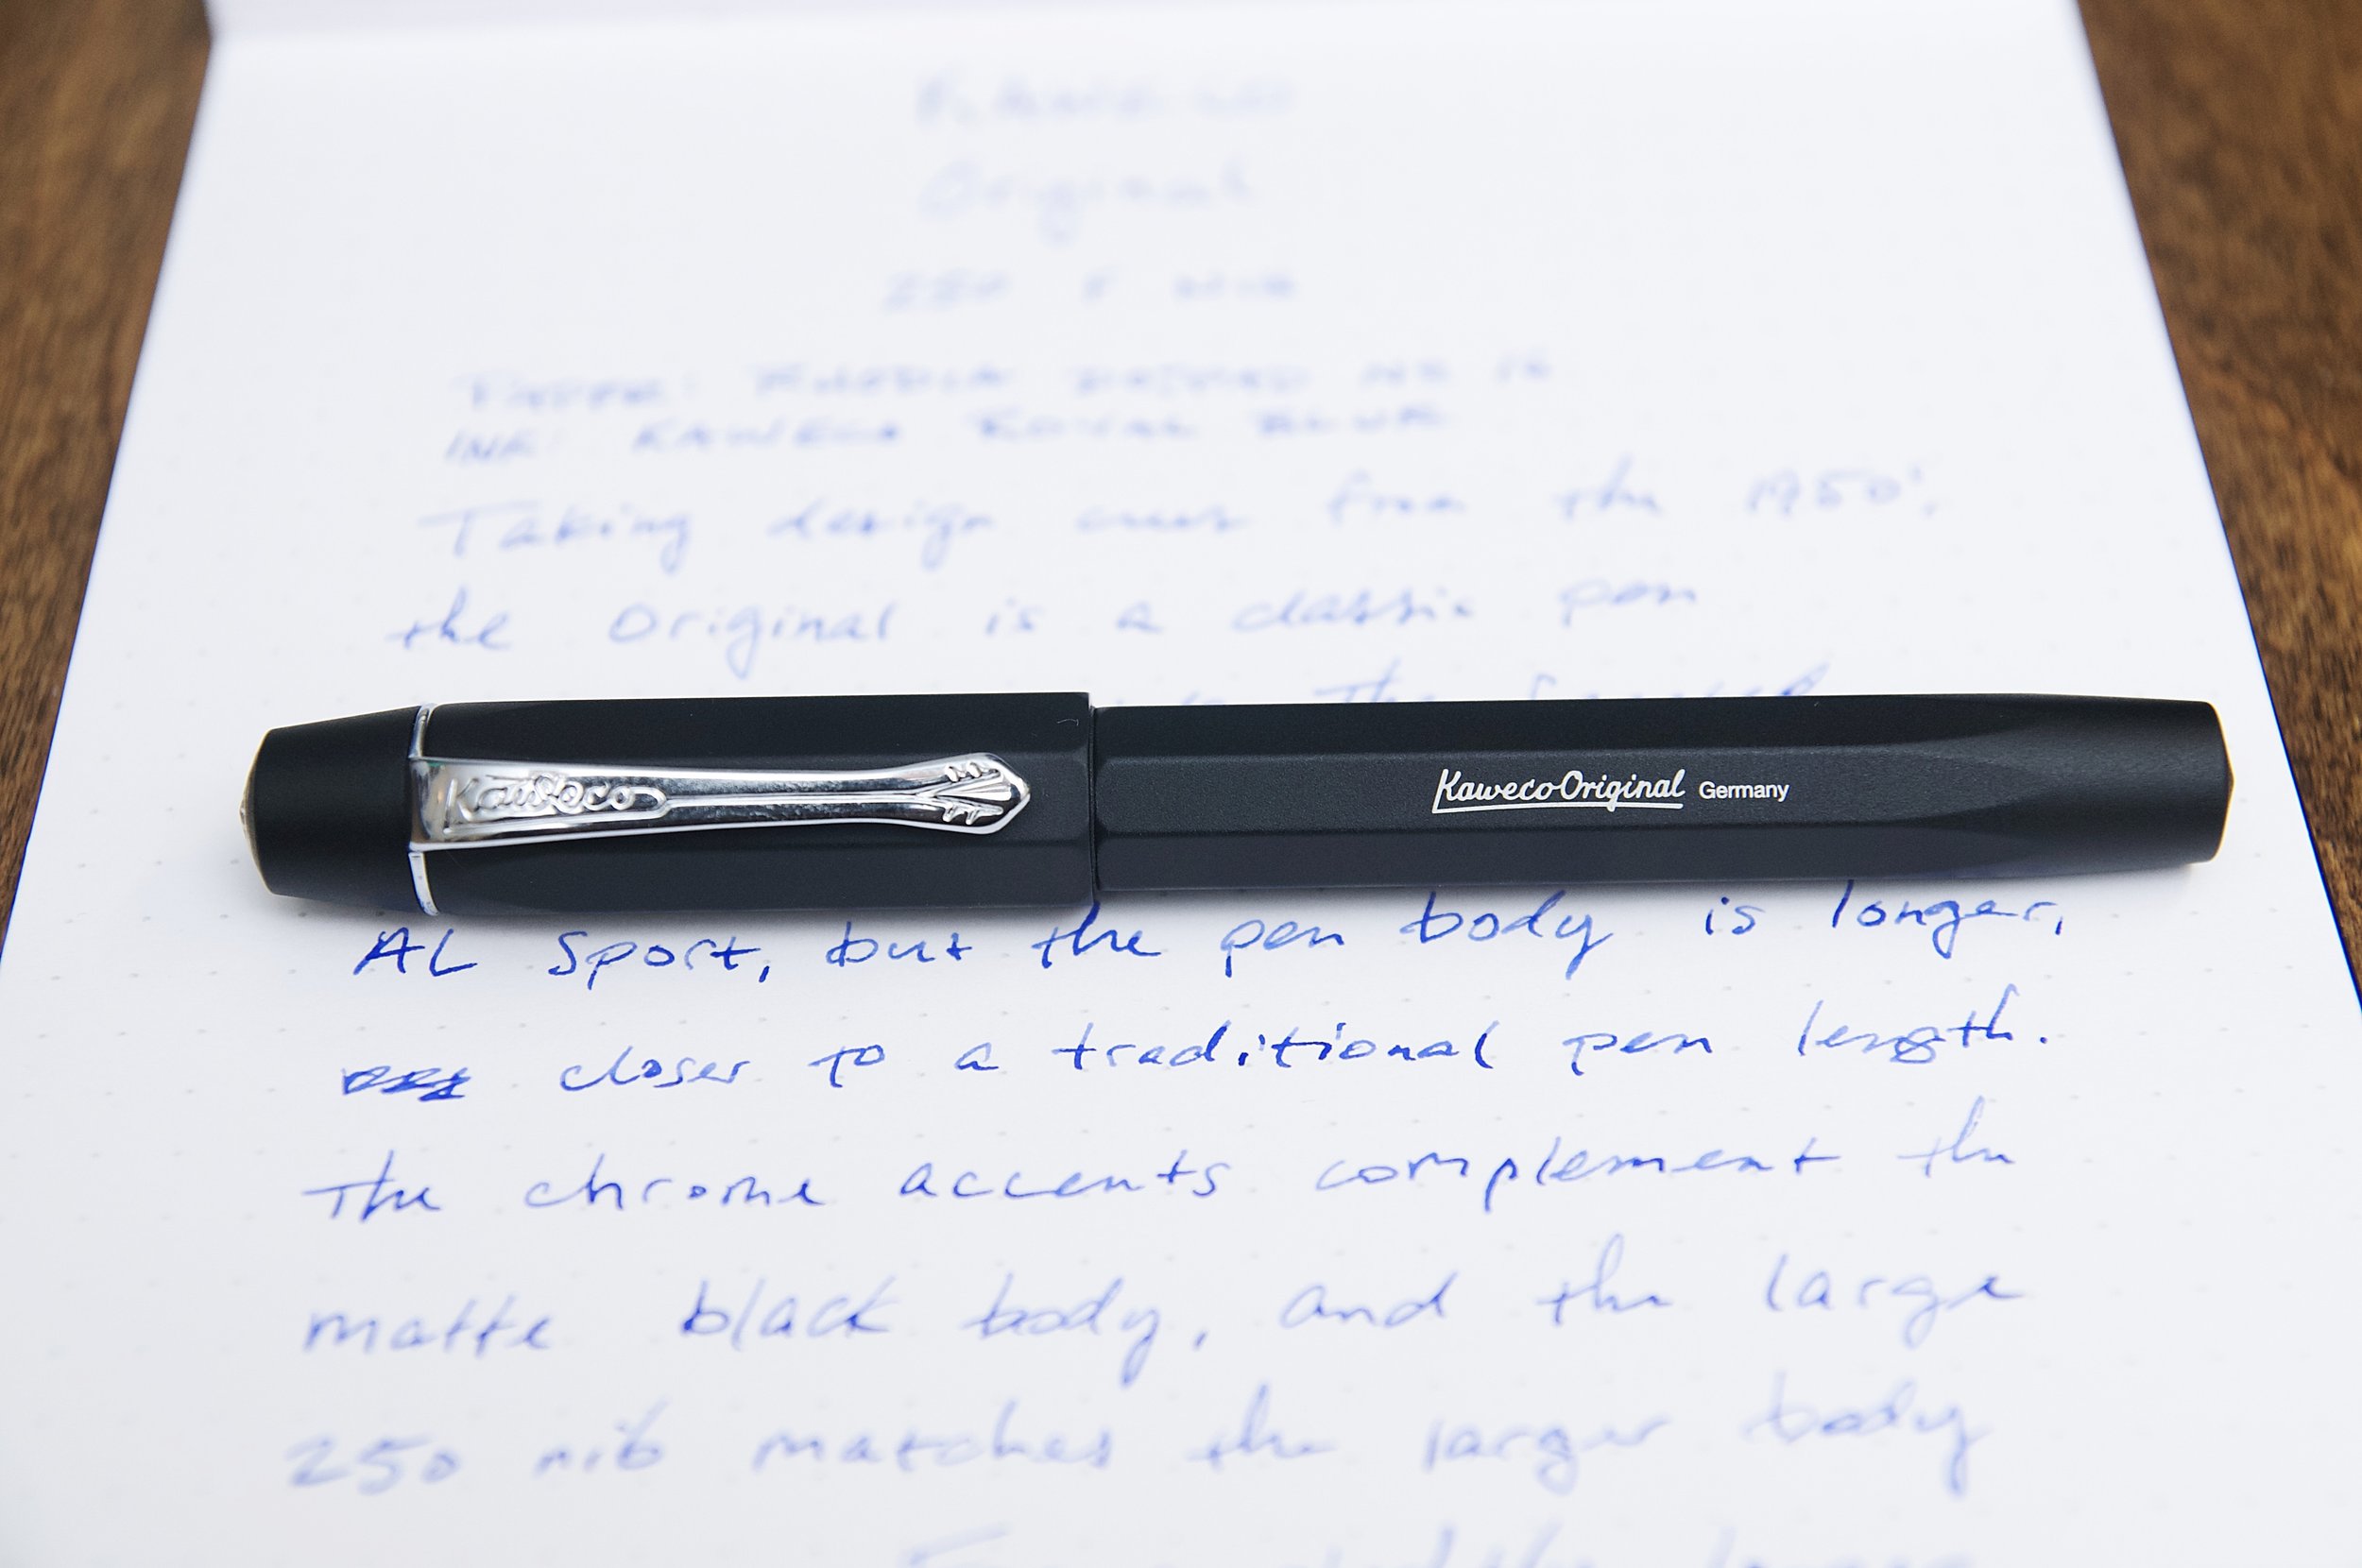 Kaweco
Original
250 F NIB
PAPER: RHODIA DOTPAD NO 16
INK: KAWECO ROYAL BLUE
Taking design cues from the 1950's
the Original is a classic pen
The faceted
Kaweco
Kaweco Original Germany
AL Sport, but the pen body is longer,
closer to a traditional pen length.
The chrome accents complement the
matte black body, and the large
250 nib matches the larger body